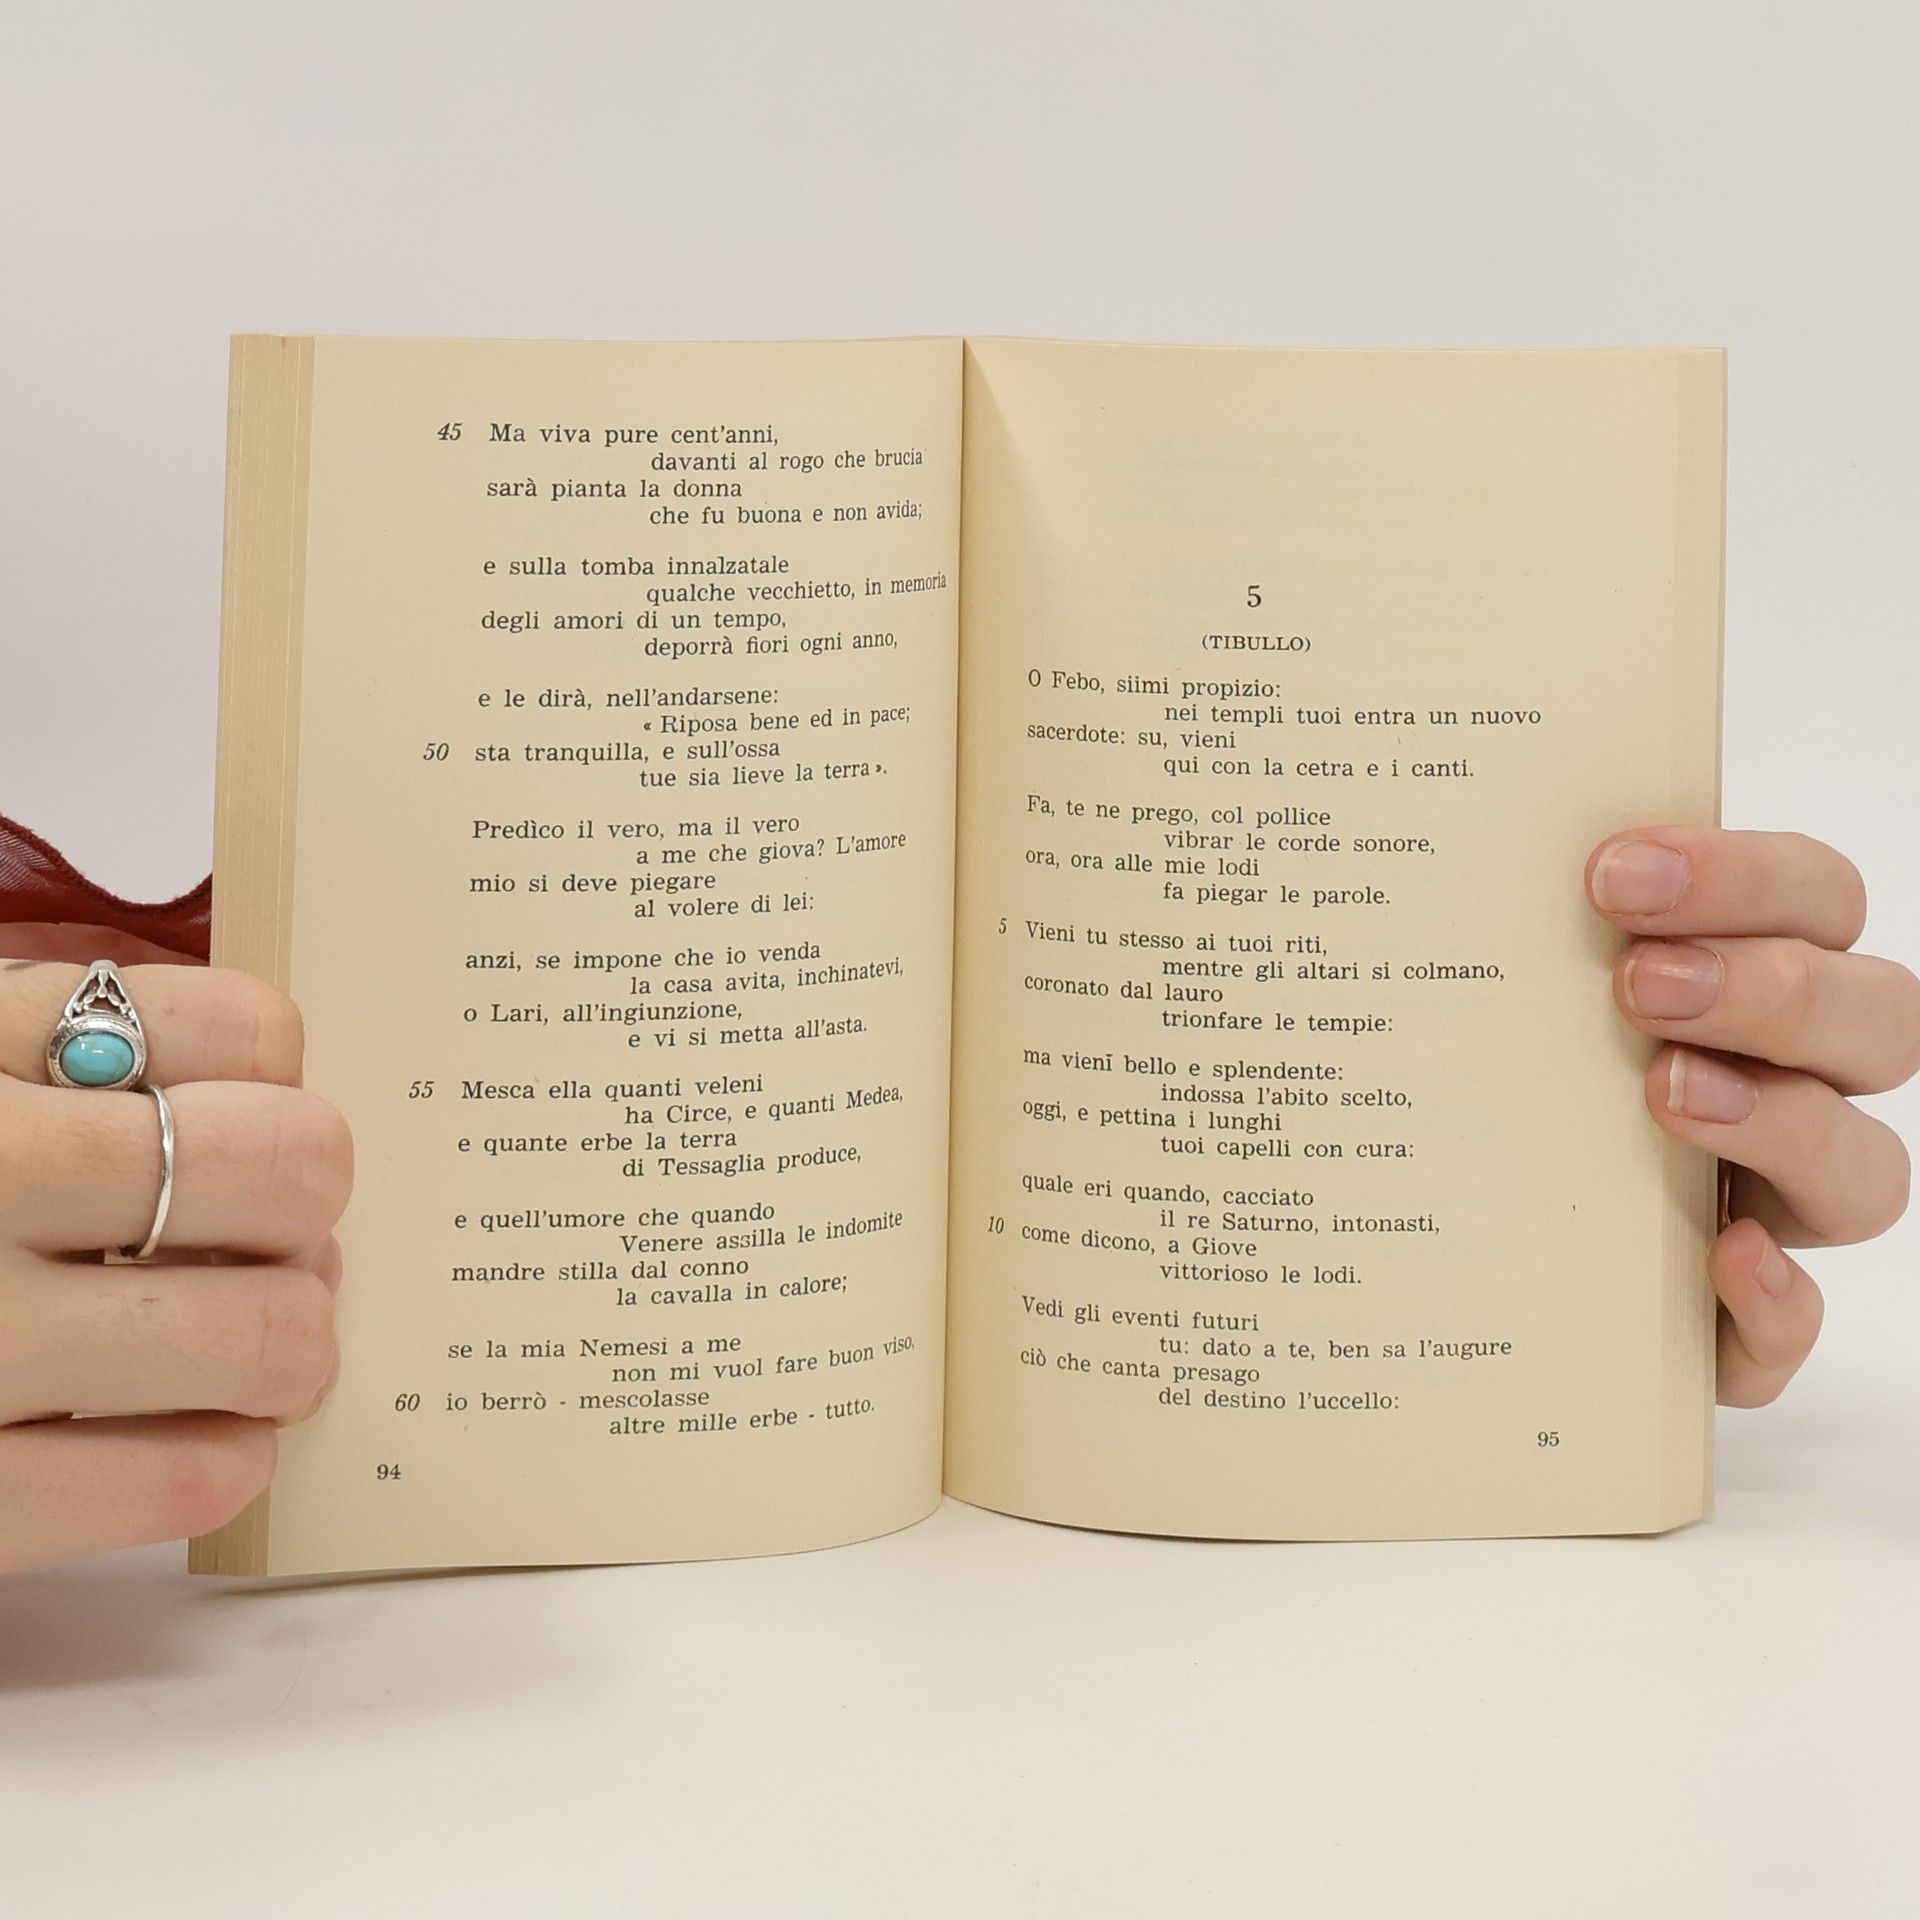 45 Ma viva pure cent'anni,
davanti al rogo che brucia
sarà pianta la donna
che fu buona e non avida;
e sulla tomba innalzatale
qualche vecchietto, in memoria
degli amori di un tempo,
deporrà fiori ogni anno,
e le dirà, nell'andarsene:
« Riposa bene ed in pace;
50 sta tranquilla, e sull'ossa
tue sia lieve la terra ».
Predìco il vero, ma il vero
a me che giova? L'amore
mio si deve piegare
al volere di lei:
anzi, se impone che io venda
la casa avita, inchinatevi,
o Lari, all'ingiunzione,
e vi si metta all'asta.
55 Mesca ella quanti veleni
ha Circe, e quanti Medea,
e quante erbe la terra
di Tessaglia produce,
e quell'umore che quando
Venere assilla le indomite
mandre stilla dal conno
la cavalla in calore;
se la mia Nemesi a me
non mi vuol fare buon viso,
60 io berrò - mescolasse
altre mille erbe - tutto.
94
5
(TIBULLO)
O Febo, siimi propizio:
nei templi tuoi entra un nuovo
sacerdote: su, vieni
qui con la cetra e i canti.
Fa, te ne prego, col pollice
vibrar le corde sonore,
ora, ora alle mie lodi
fa piegar le parole.
5 Vieni tu stesso ai tuoi riti,
mentre gli altari si colmano,
coronato dal lauro
trionfare le tempie:
ma vieni bello e splendente:
indossa l'abito scelto,
oggi, e pettina i lunghi
tuoi capelli con cura:
quale eri quando, cacciato
il re Saturno, intonasti,
10 come dicono, a Giove
vittorioso le lodi.
Vedi gli eventi futuri
tu: dato a te, ben sa l'augure
ciò che canta presago
del destino l'uccello:
95